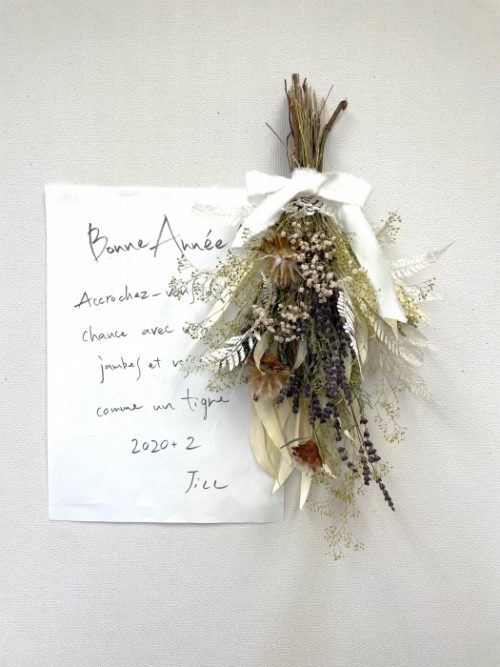 Bonne Année
Accrochez-vous
chance avec
jambes et
comme un tigre
2020+2
Jill